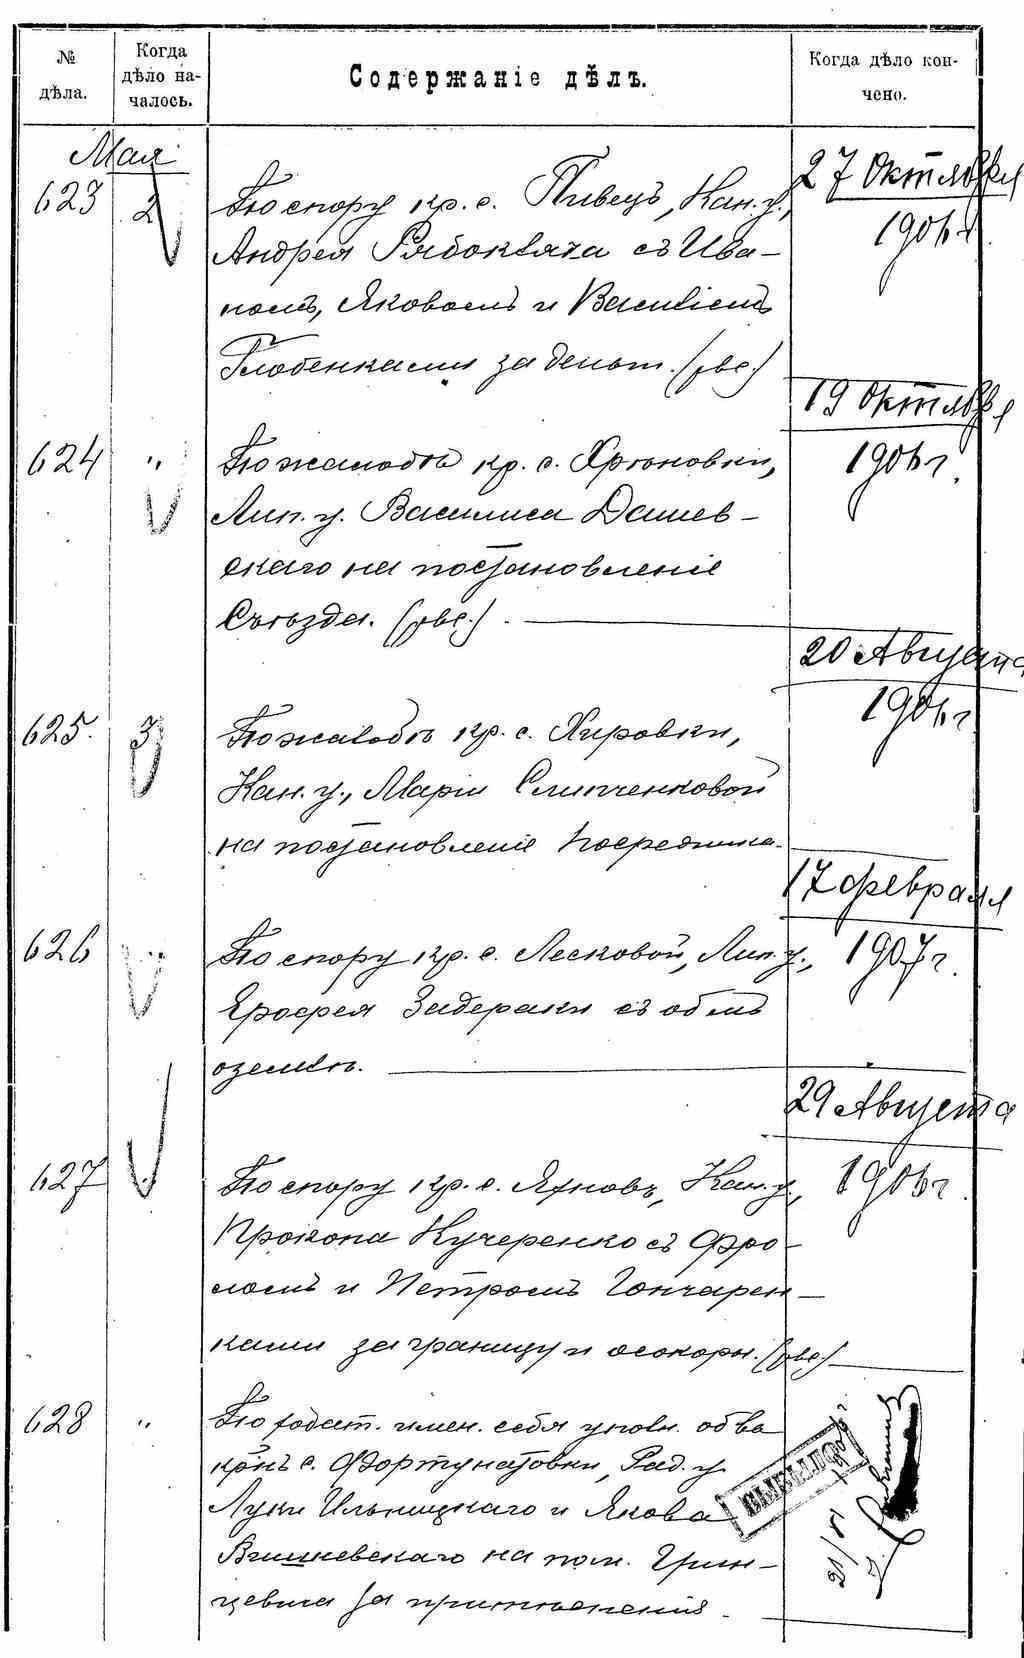 № дѣла.
Когда дѣло началось.
Содержаніе дѣлъ.
Когда дѣло кончено.
Мая
623
2
По спору кр. с. Пивецъ, Кан. у.,
Андрея Рябокляча съ Ива-
номъ, Яковомъ и Василіемъ
Глобенками за деньги. (две.)
27 Октября
1906 г.
624
"
По жалобѣ кр. с. Хрѣновки,
Лип. у. Василиса Дашев-
скаго на постановленіе
Съѣзда. (две.)
19 Октября
1906 г.
625.
3
По жалобѣ кр. с. Хировки,
Кан. у., Маріи Слипченковой
на постановленіе Посредника.
20 Августа
1906 г.
626
"
По спору кр. с. Лесковой, Лип. у.,
Ерофея Задераки съ общ.
о землѣ.
17 февраля
1907 г.
627
По спору кр. с. Яхновъ, Кан. у.,
Прокопа Кучеренко съ Фро-
ломъ и Петромъ Гончарен-
ками за границу и осокоры. (две.)
29 Августа
1906 г.
628
"
По ходат. имен. себя уполн. об-ва
кр-нъ с. Фортунатовки, Рад. у.
Луки Ильницкаго и Якова
Вишневскаго на пом. Грин-
цевича за притѣсненія.
ВЫБЫЛО